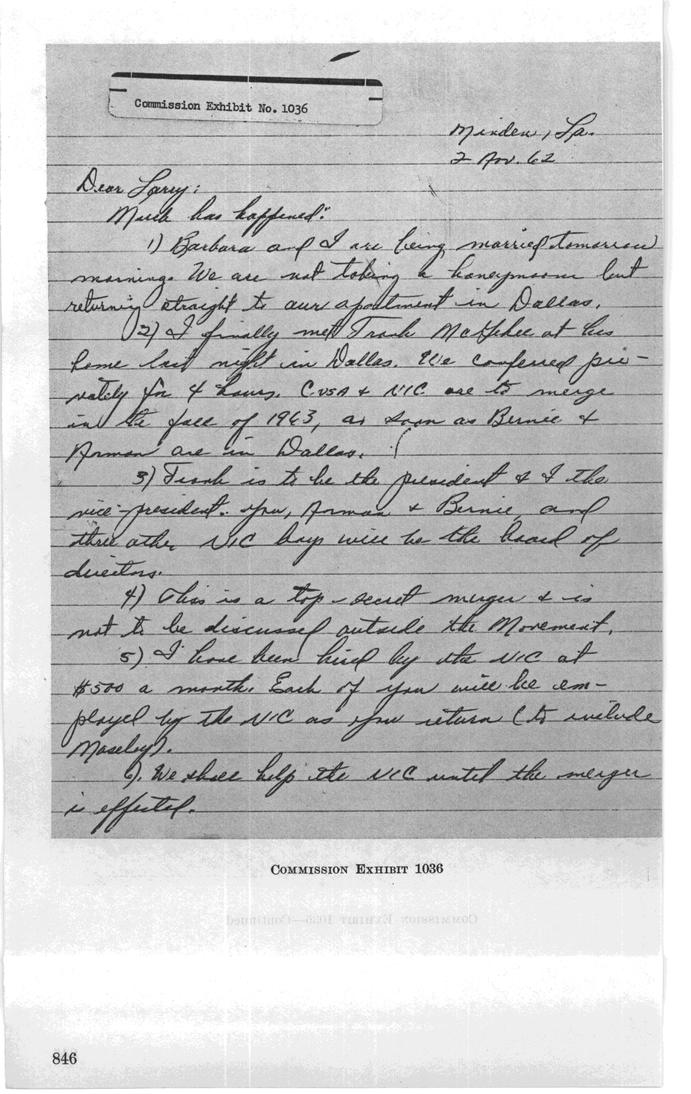 Commission Exhibit No. 1036
Minden, La.
2 Nov. 62
Dear Larry:
Much has happened:
1) Barbara and I are being married tomorrow
morning. We are not taking a honeymoon but
returning straight to our apartment in Dallas.
2) I finally met Frank McGehee at his
home last night in Dallas. We conferred pri-
vately for 4 hours. CUSA & NIC are to merge
in the fall of 1963, as soon as Bernie &
Norman are in Dallas.
3) Frank is to be the president & I the
vice-president. You, Norman & Bernie, and
three other NIC boys will be the board of
directors.
4) This is a top-secret merger & is
not to be discussed outside the Movement.
5) I have been hired by the NIC at
$500 a month. Each of you will be em-
ployed by the NIC as you return (to include
Moseley).
6). We shall help the NIC until the merger
is effected.
COMMISSION EXHIBIT 1036
COMMISSION EXHIBIT 1036—Continued
846